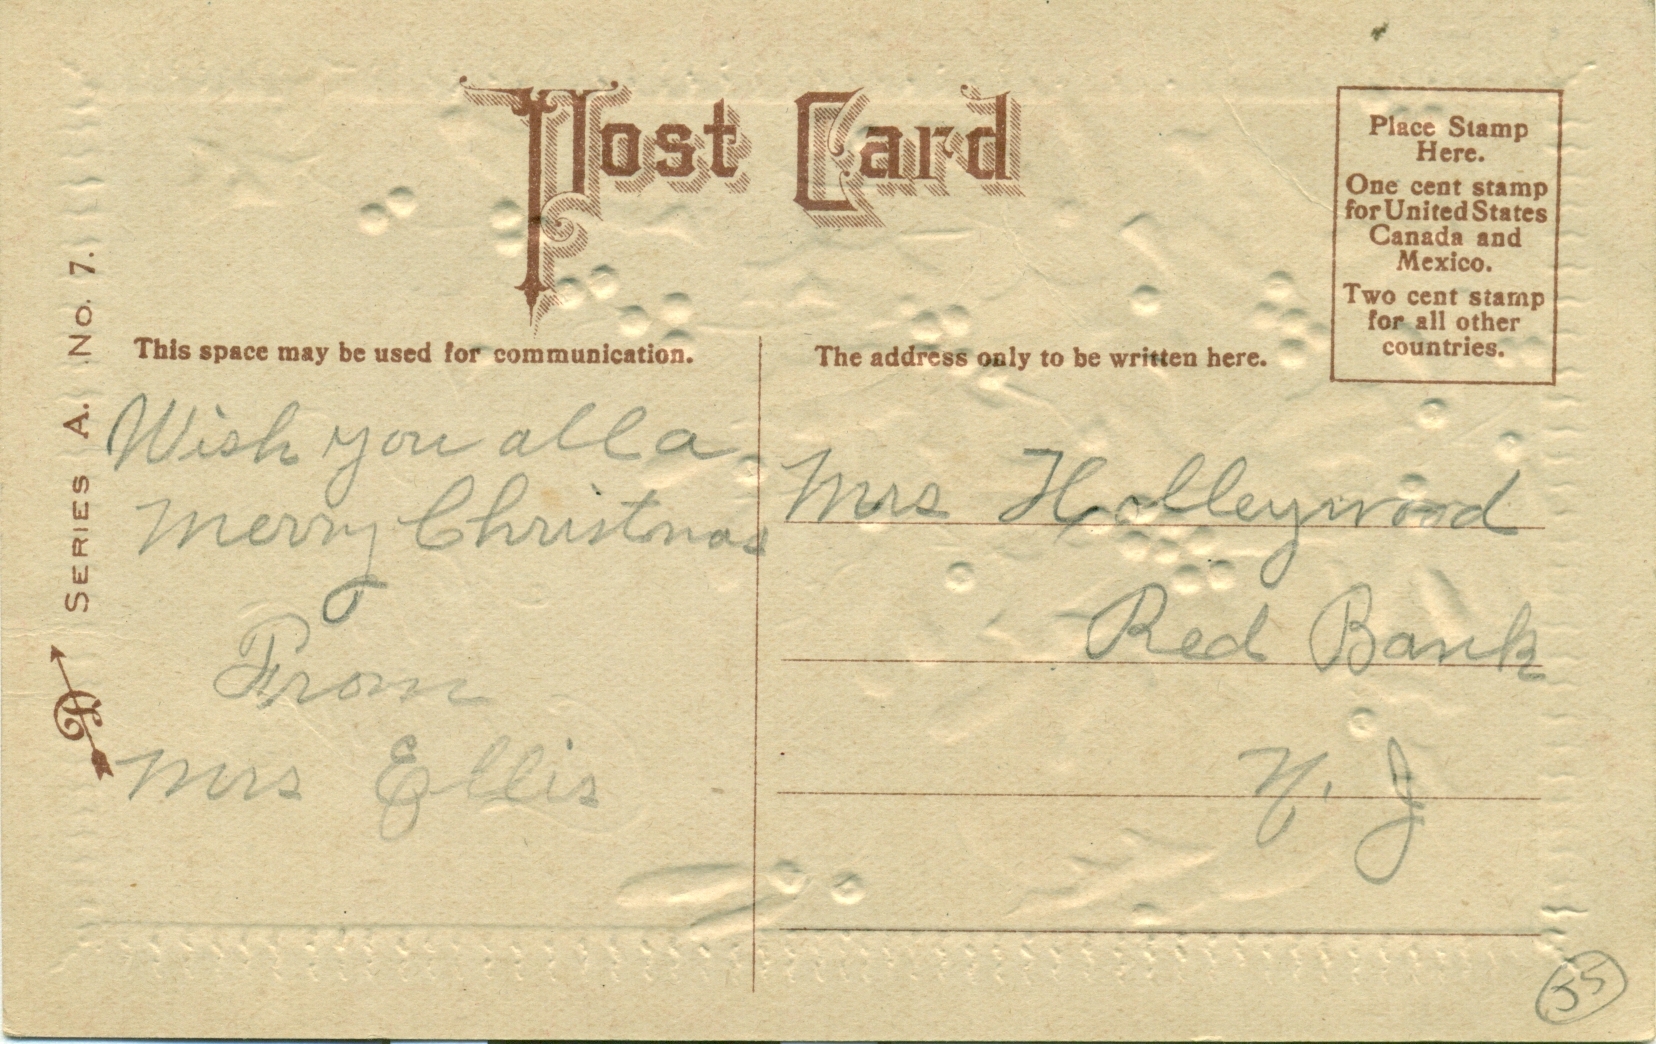 Post Card
Place Stamp
Here.
One cent stamp
for United States
Canada and
Mexico.
Two cent stamp
for all other
countries.
SERIES A. No. 7.
This space may be used for communication.
The address only to be written here.
Wish you all a
Merry Christmas
From
Mrs Ellis
Mrs Holleywood
Red Bank
N. J
35